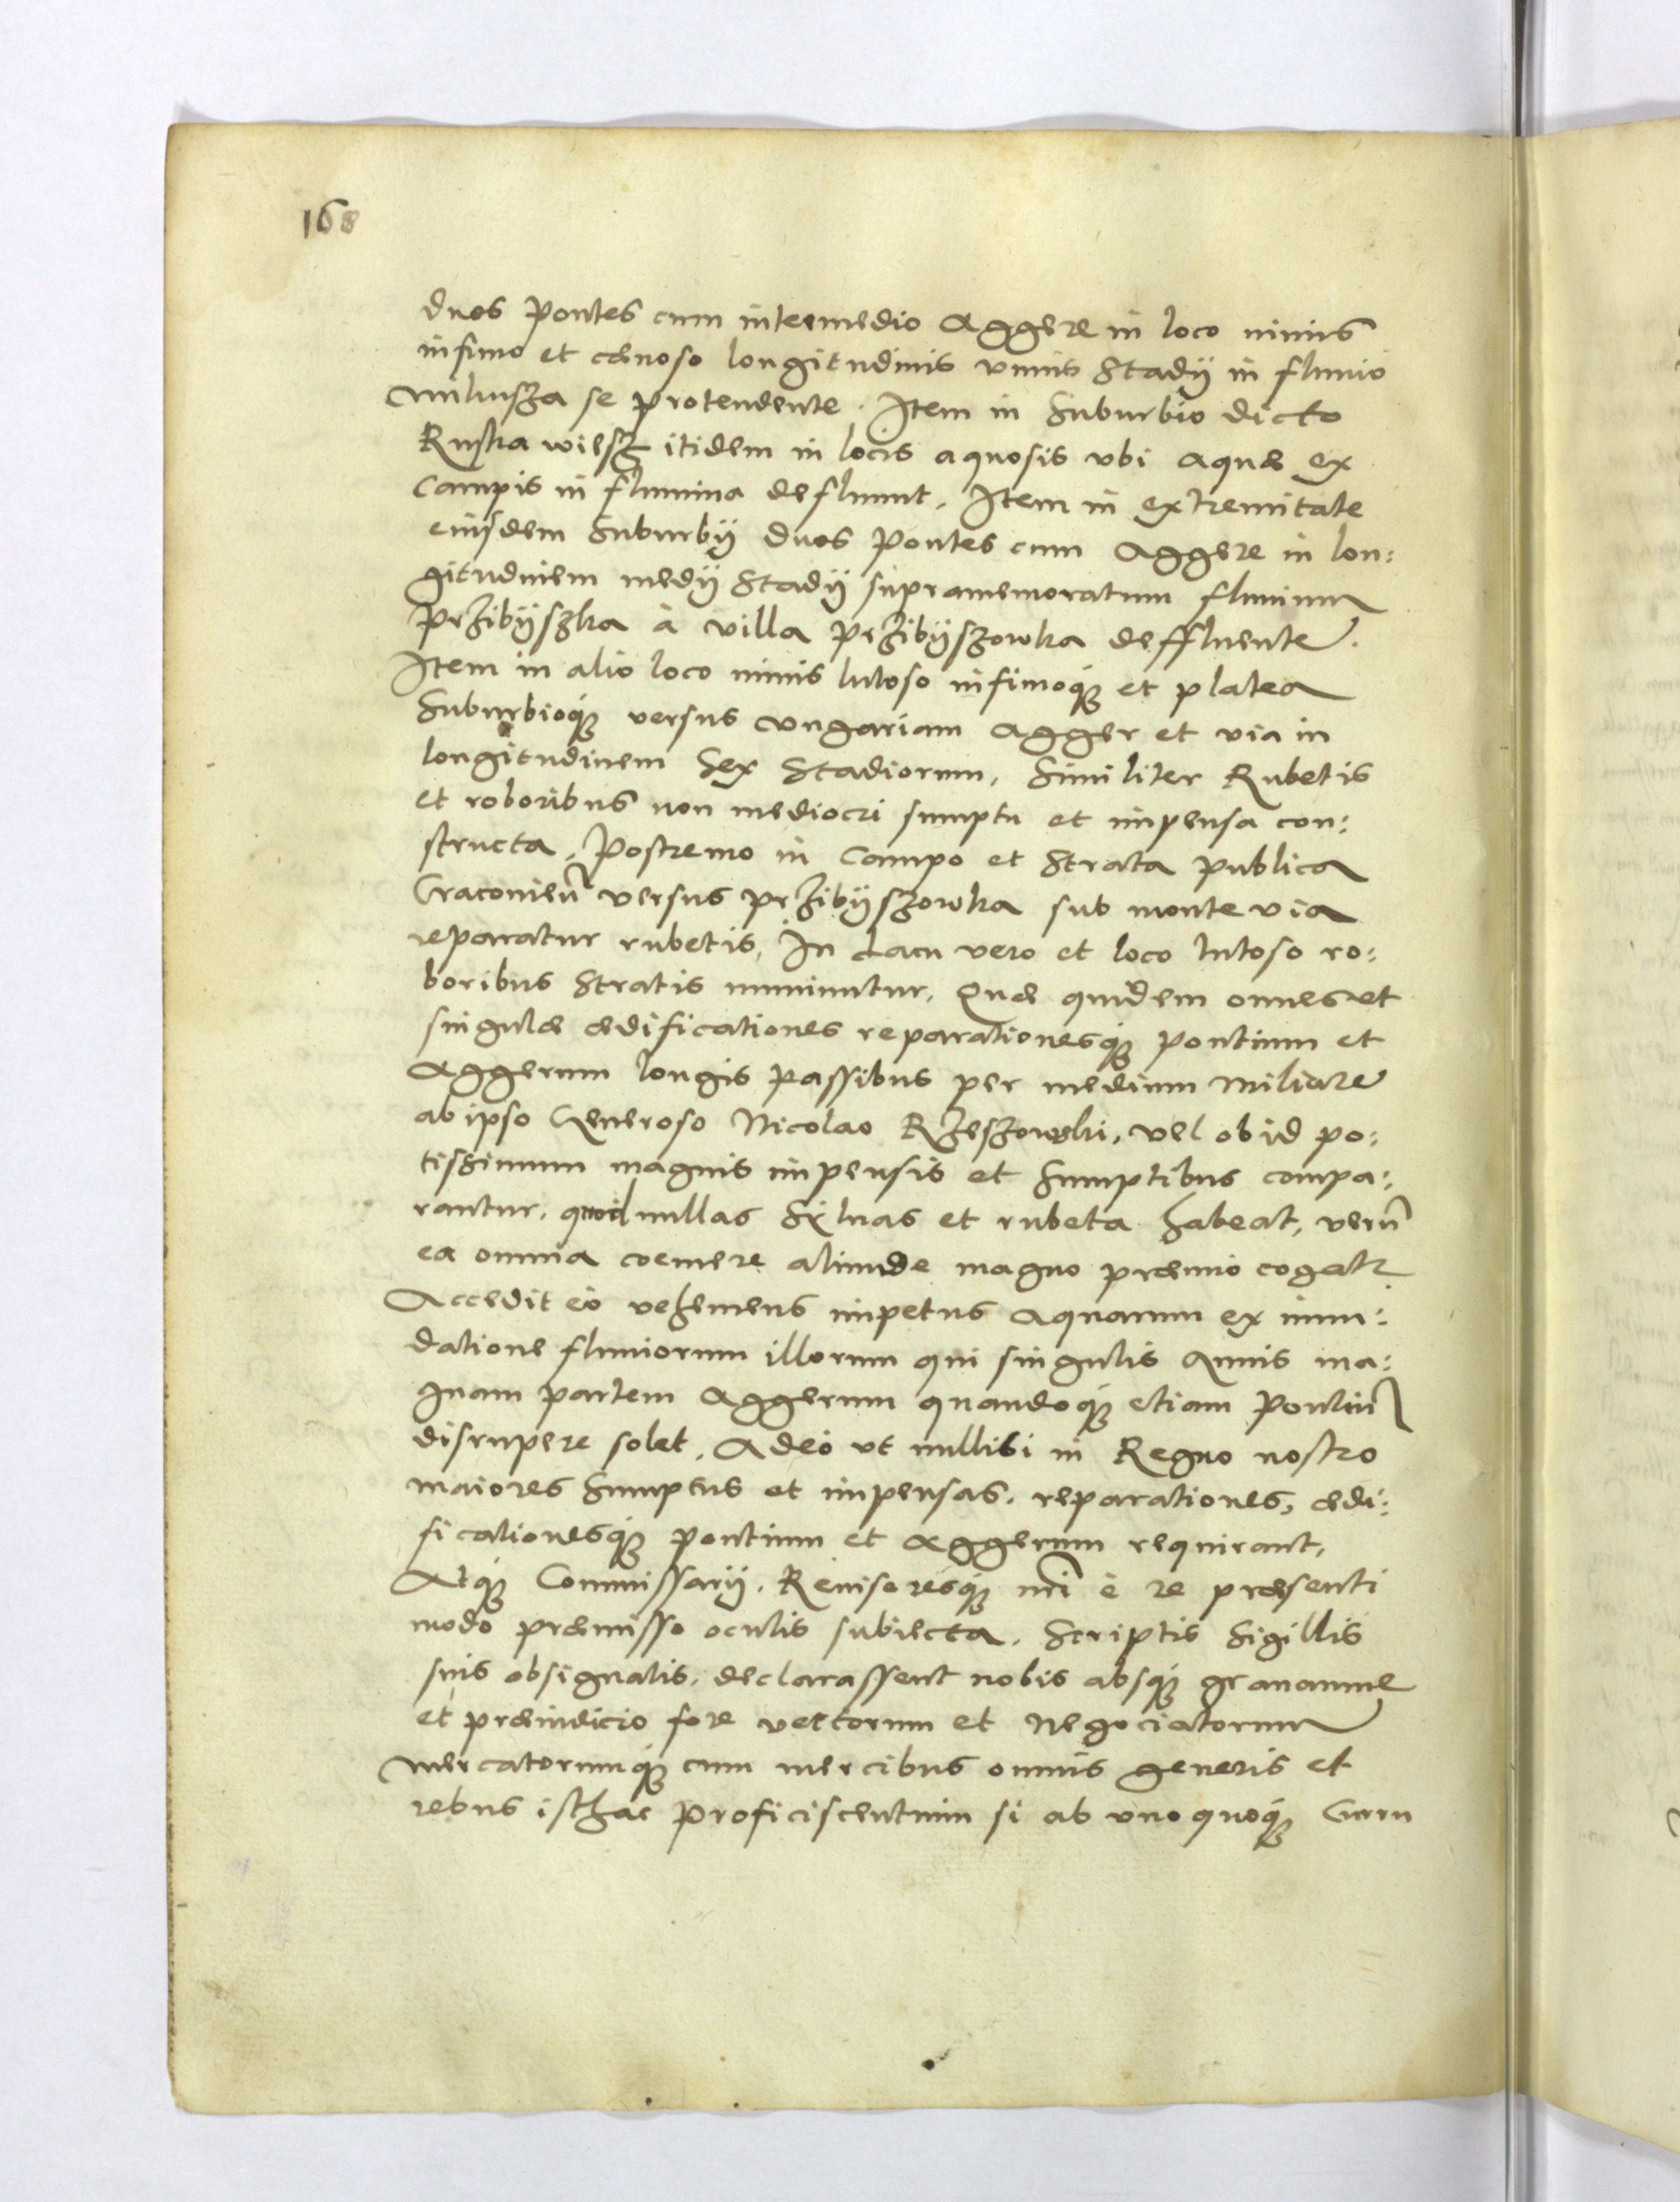 168
duos Pontes cum intermedio Aggere in loco nimis
infimo et cænoso longitudinis vnius Stadij in fluuio
Miluszka se protendente. Item in Suburbio dicto
Ruska wiesz itidem in locis aquosis vbi aquæ ex
Campis in flumina defluunt. Item in extremitate
eiusdem Suburbij duos Pontes cum Aggere in lon:
gitudinem medij Stadij supramemoratum fluuium
Przibÿszka à villa Przibÿszowka deffluente.
Item in alio loco nimis lutoso infimoq; et platea
Suburbioq; versus Vngariam Agger et via in
longitudinem Sex Stadiorum, Similiter Rubetis
et roboribus non mediocri sumptu et impensa con:
structa, Postremo in Campo et Strata publica
Cracouien̄ versus Przibÿszowka sub monte via
reparatur rubetis, In Lacu vero et loco lutoso ro:
boribus Stratis muniuntur, Quæ quidem omnes et
singulæ ædificationes reparationesq; Pontium et
Aggerum longis Passibus per medium Miliare
ab ipso Generoso Nicolao Rzeszowski, vel ob id po:
tissimum magnis impensis et Sumptibus compa:
rantur, quod nullas Syluas et rubeta habeat, verū
ea omnia coemere aliunde magno præmio cogatr
Accedit eò vehemens impetus Aquarum ex inun:
datione fluuiorum illorum qui singulis Annis ma:
gnam partem Aggerum quandoq; etiam Pontiū
disrupere solet, Adeò vt nullibi in Regno nostro
maiores Sumptus et impensas, reparationes, ædi:
ficationesq; pontium et Aggerum requirant,
Atq; Commissarij, Reuisoresq; nr̄i è re præsenti
modo præmisso oculis subiecta, Scriptis Sigillis
suis obsignatis, declarassent nobis absq; grauamine
et præiudicio fore vectorum et Negociatorum
Mercatorumq; cum mercibus omnis generis et
rebus isthac proficiscentium si ab vno quoq; Curru